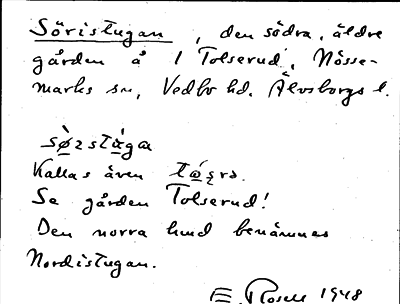 Söristugan, den södra, äldre
gården å 1 Tolserud, Nösse-
marks sn, Vedbo hd. Älvsborgs l.
sø̀rstága
Kallas även
Se gården Tolserud!
Den norra hund benämnes
Nordistugan.
E. Rosell 1948